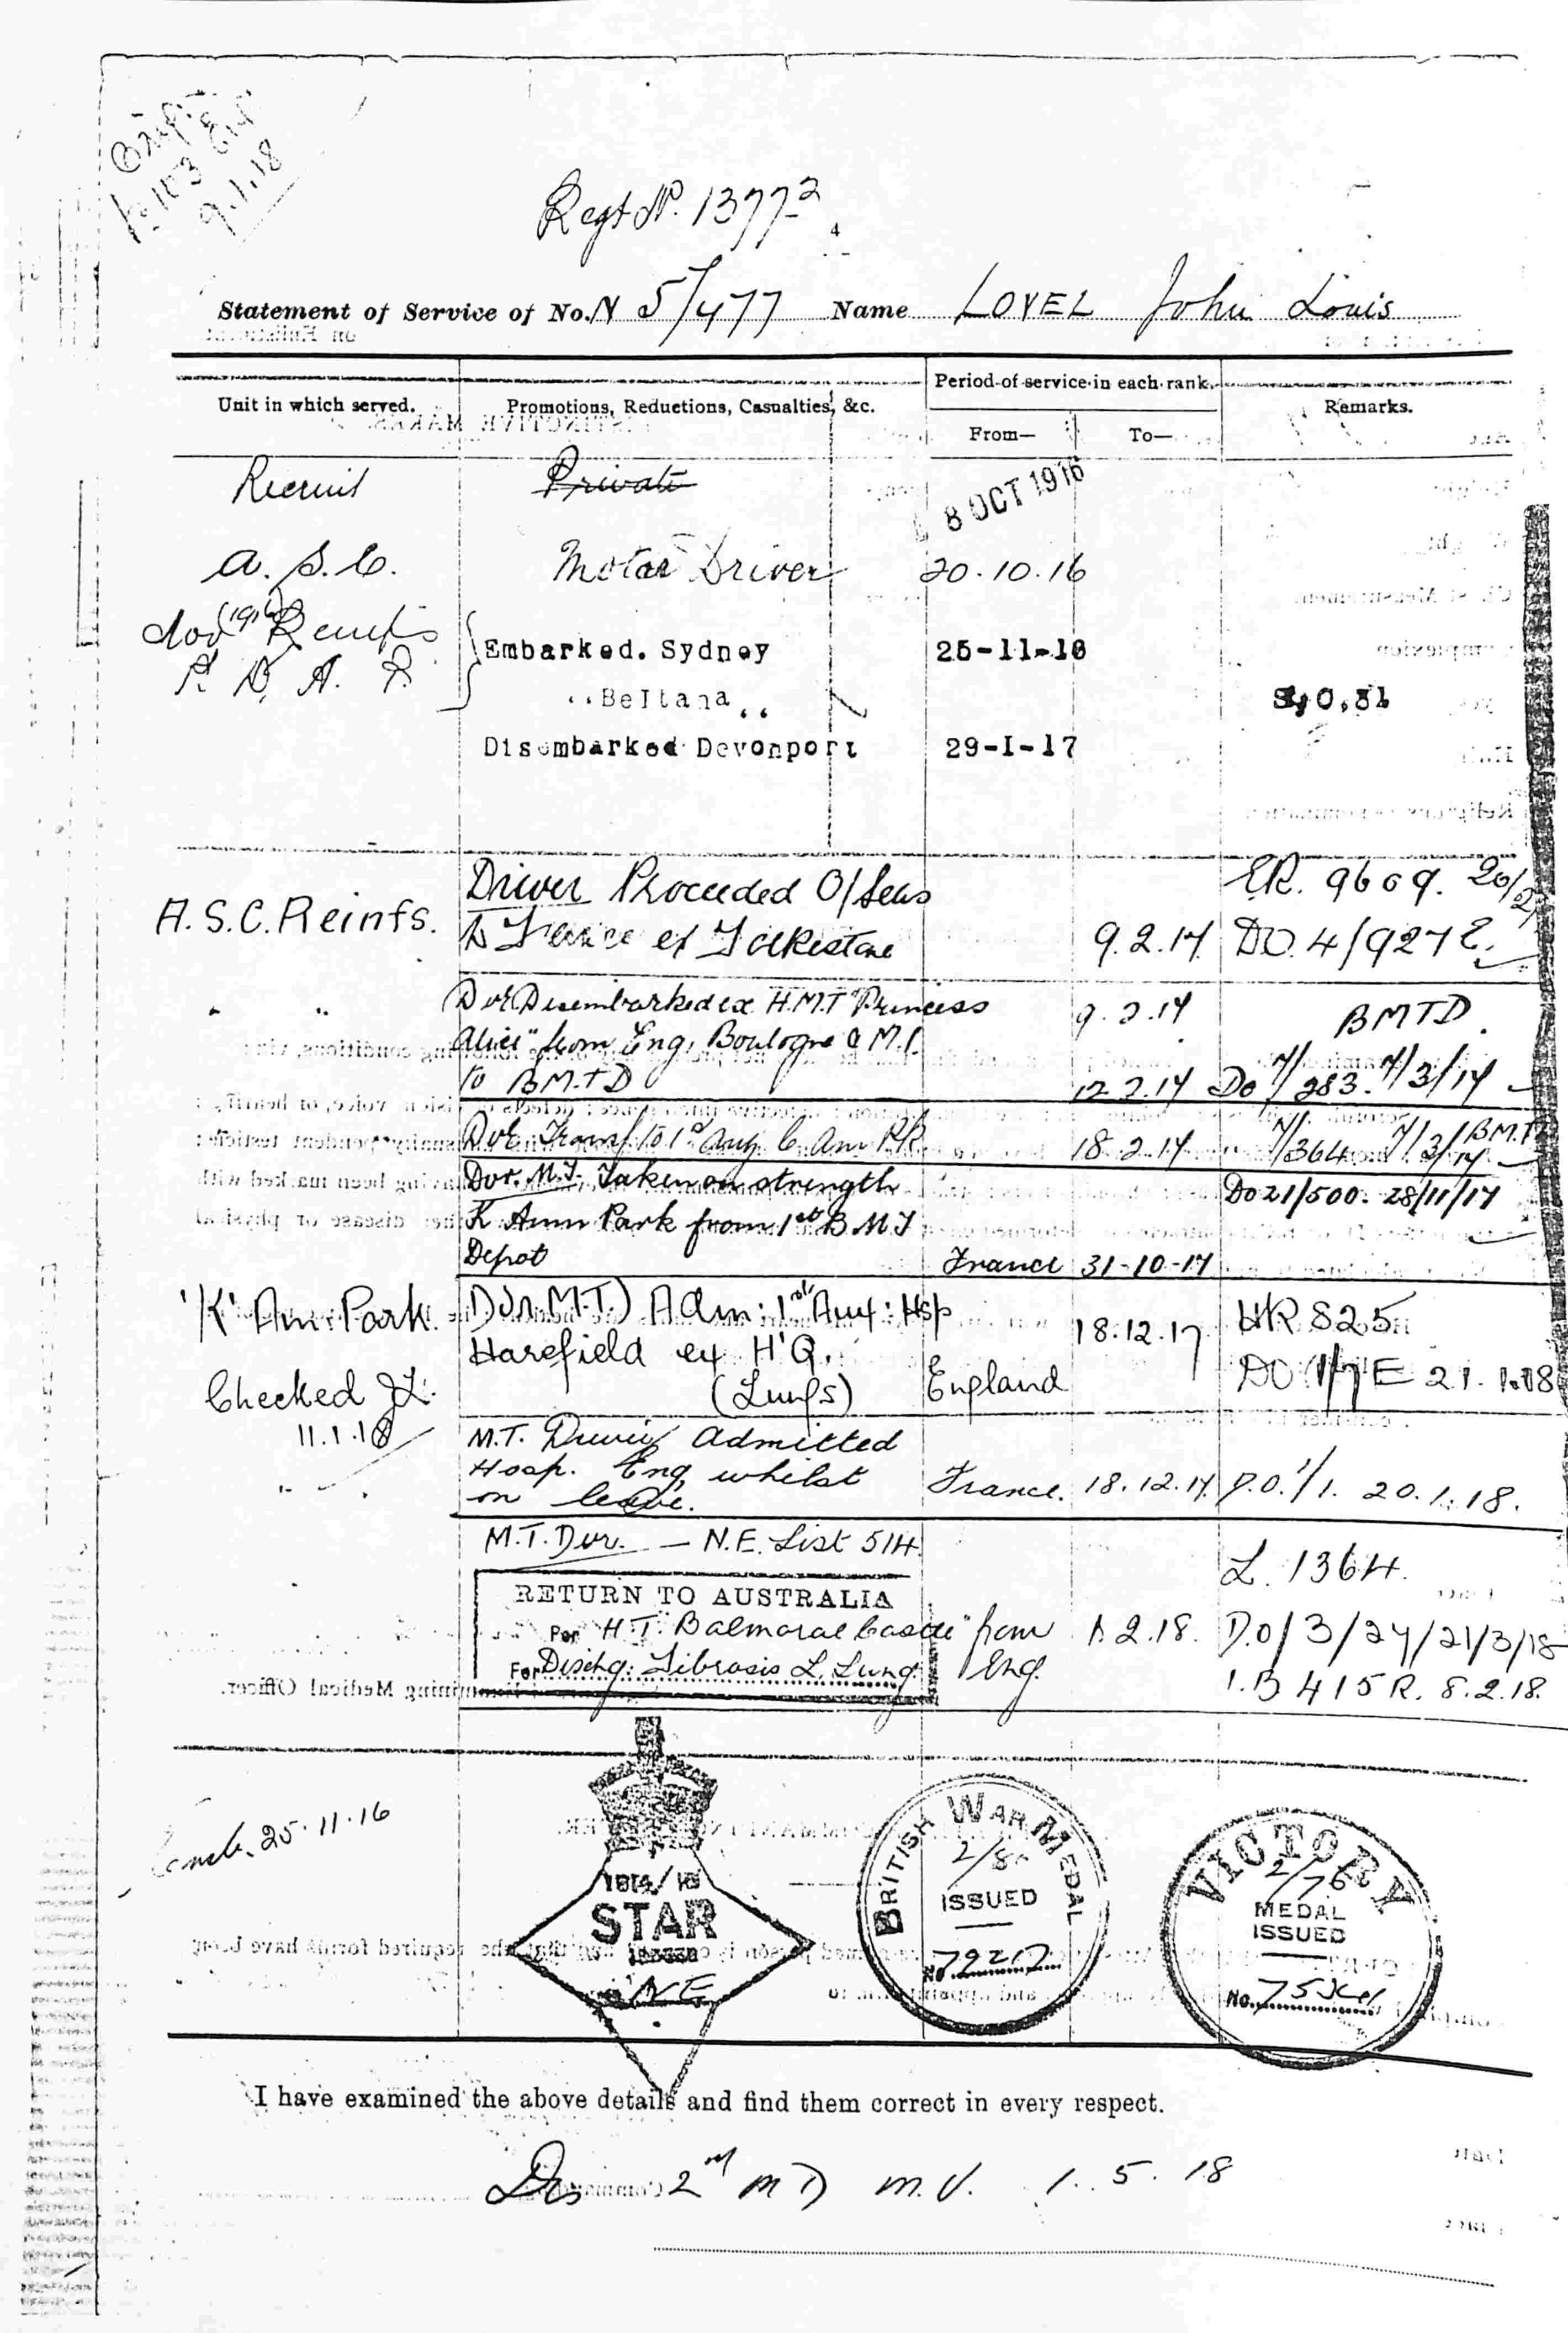 9.1.18
Regt No. 13772
Statement of Service of No. N 5/477 Name LOVEL John Louis
Unit in which served.
Promotions, Reductions, Casualties, &c.
Period of service in each rank.
From—
To—
Remarks.
Recruit
Private
8 OCT 1916
A.S.C.
Motor Driver
20.10.16
Nov (1916) Reinfs
Embarked. Sydney
25-11-16
"Beltana"
Disembarked Devonport
29-I-17
A.S.C. Reinfs.
Driver Proceeded O/Seas
to France ex Folkestone
9.2.17
ER. 9609. 20/2
DO. 4/927 E.
" "
Dvr Disembarked ex H.M.T "Princess
Alice" from Eng. Boulogne & M.I.
to BMTD
9.2.17
12.2.17
BMTD.
Do 7/283. 7/3/17
Dvr Transf to 1st Aux C Am Pk
18.2.17
7/364 7/3/17
Dvr. M.T. Taken on strength
K Amm Park from 1st B M T
Depot
France 31-10-17
Do 21/500. 28/11/17
'K' Am: Park.
Dvr M.T.) Adm: 1st Aux: Hsp
Harefield ex H'Q.
(Lungs)
England
18.12.17
HR 825
DO 1/7E 21.1.18
Checked JL.
11.1.18
M.T. Driver Admitted
Hosp. Eng whilst
on leave.
France. 18.12.17. D.O. 1/1. 20.1.18.
M.T. Dvr. — N.E. List 514
L. 1364.
RETURN TO AUSTRALIA
Per H.T. "Balmoral Castle" from
Eng.
For Dischg: Fibrosis L. Lung.
2.18.
D.O/3/24/21/3/18
I.B 415 R. 8.2.18.
25.11.16
1914/15
STAR
ISSUED
NE
BRITISH WAR MEDAL
ISSUED
No.
VICTORY
2/76
MEDAL
ISSUED
No.
I have examined the above details and find them correct in every respect.
Dis 2nd M D M.U. 1.5.18